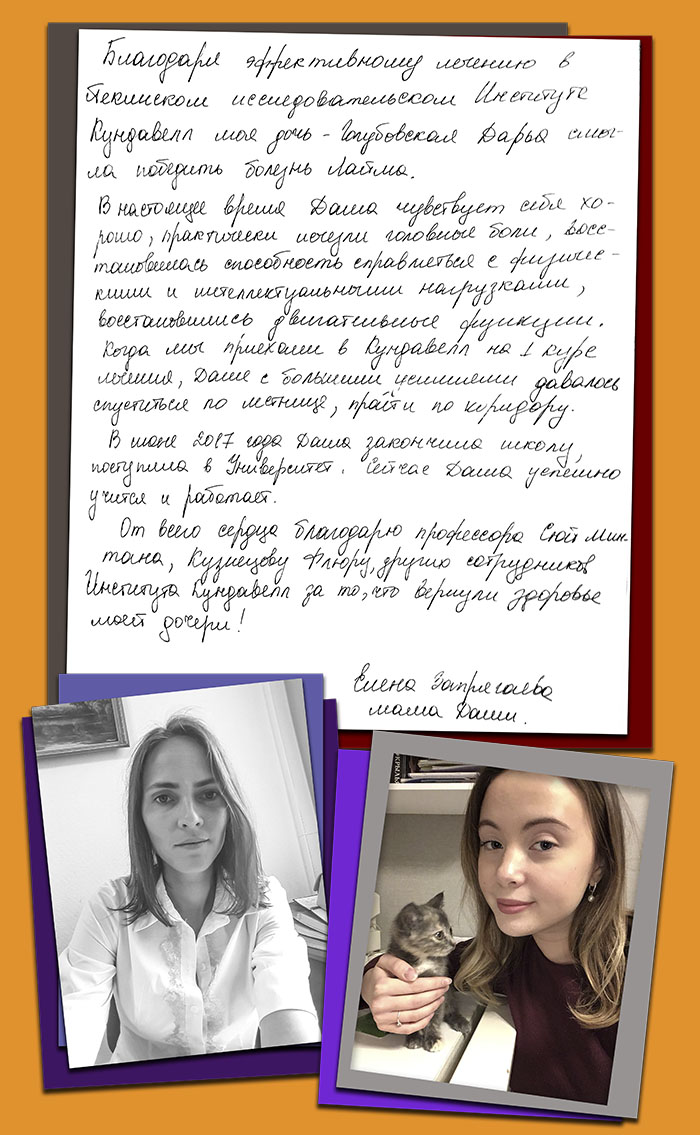 Благодаря эффективному лечению в
Пекинском исследовательском Институте
Кундавелл моя дочь - Голубовская Дарья смог-
ла победить болезнь Лайма.
В настоящее время Даша чувствует себя хо-
рошо, практически исчезли головные боли, восс-
тановилась способность справляться с физичес-
кими и интеллектуальными нагрузками,
восстановились двигательные функции.
Когда мы приехали в Кундавелл на 1 курс
лечения, Даше с большими усилиями давалось
спуститься по лестнице, пройти по коридору.
В июне 2017 года Даша закончила школу,
поступила в Университет. Сейчас Даша успешно
учится и работает.
От всего сердца благодарю профессора Сюй Мин-
тана, Кузнецову Флюру, других сотрудников
Института Кундавелл за то, что вернули здоровье
моей дочери!
Елена Запрягаева
мама Даши.